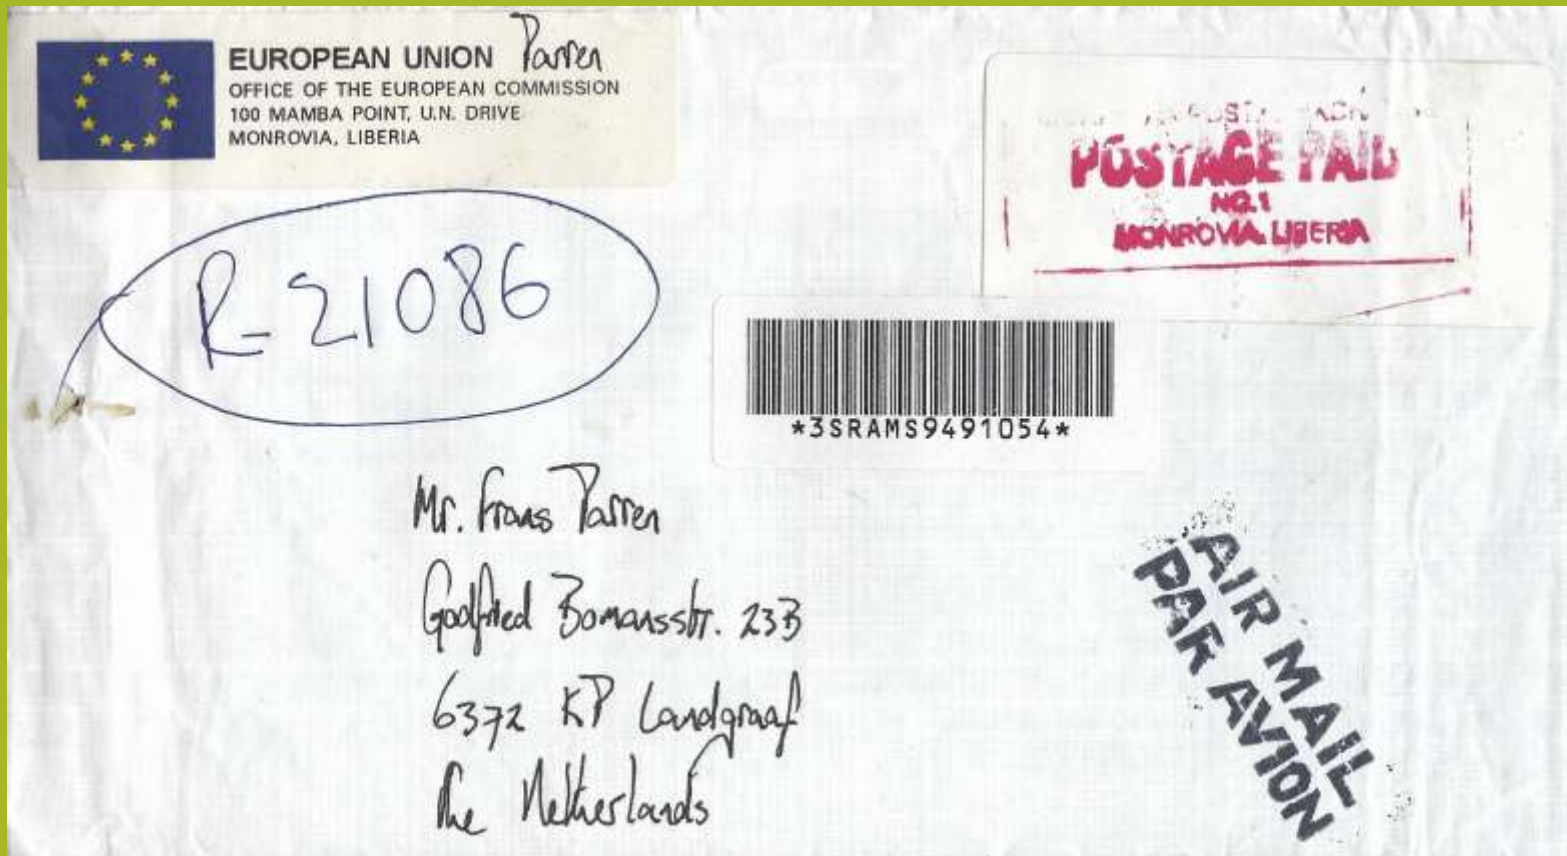 EUROPEAN UNION Parren
OFFICE OF THE EUROPEAN COMMISSION
100 MAMBA POINT, U.N. DRIVE
MONROVIA, LIBERIA
POSTAGE PAID
NO.1
MONROVIA. LIBERIA
R-21086
*3SRAMS9491054*
Mr. Frans Parren
Godfried Bomansstr. 23B
6372 KP Landgraaf
The Netherlands
AIR MAIL
PAR AVION